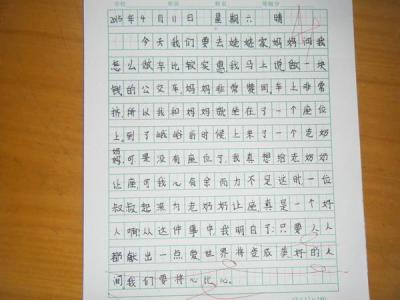 2015年4月11日 星期六 晴
今天我们要去姥姥家妈妈问我
怎么做车比较实惠我马上说做一块
钱的公交车妈妈非常赞同。车上非常
挤所以我和妈妈做在了一个座位
上。到了峨峪的时候上来了一个老奶
奶可是没有座位了。我真想给老奶奶
让座可我心有余而力不足这时一位
叔叔起来为老奶奶让座真是一个好
人啊从这件事中我明白了:只要人人
都献出一点爱世界将变成美好的人
间我们要将心比心。